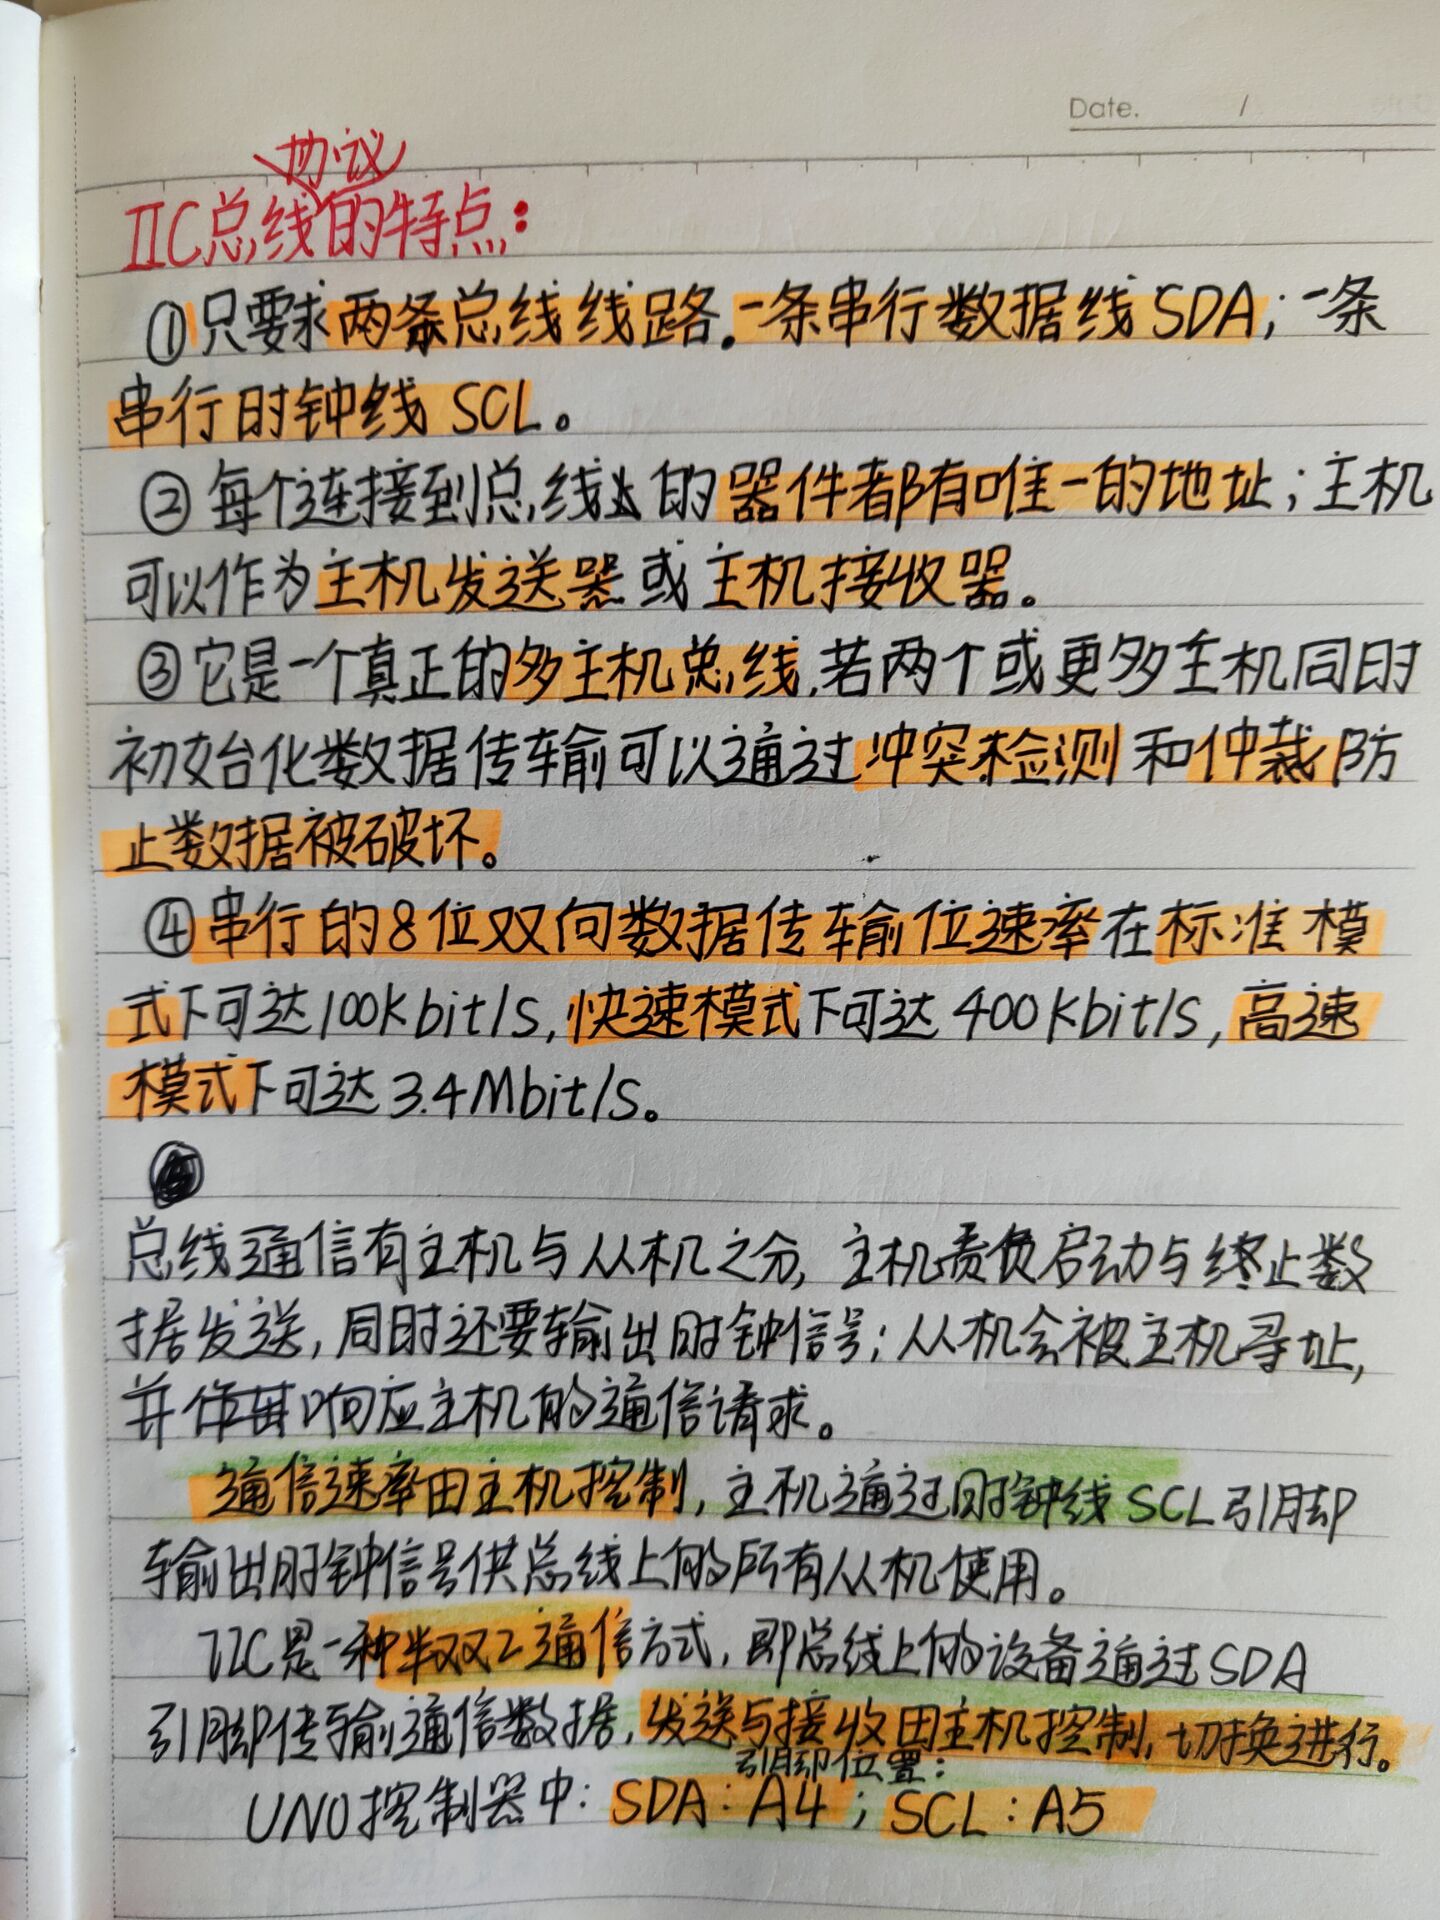 Date. /
协议
IIC总线的特点:
①只要求两条总线线路。一条串行数据线SDA;一条
串行时钟线SCL。
②每个连接到总线上的器件都有唯一的地址;主机
可以作为主机发送器或主机接收器。
③它是一个真正的多主机总线,若两个或更多主机同时
初始化数据传输可以通过冲突检测和仲裁防
止数据被破坏。
④串行的8位双向数据传输位速率在标准模
式下可达100Kbit/s,快速模式下可达400Kbit/s,高速
模式下可达3.4Mbit/s。
总线通信有主机与从机之分,主机责负启动与终止数
据发送,同时还要输出时钟信号;从机会被主机寻址,
并响应主机的通信请求。
通信速率由主机控制,主机通过时钟线SCL引脚
输出时钟信号供总线上的所有从机使用。
IIC是一种半双工通信方式,即总线上的设备通过SDA
引脚传输通信数据,发送与接收由主机控制,切换进行。
引脚位置:
UNO控制器中:SDA:A4;SCL:A5